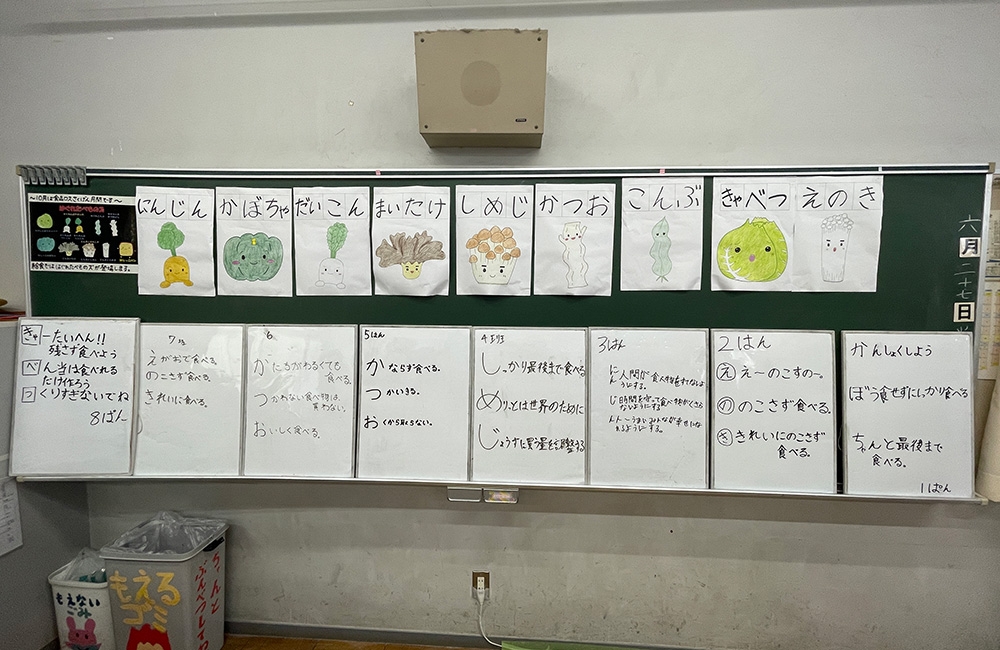 ～10月は食品ロスさくげん月間です～
にんじん
かぼちゃ
だいこん
まいたけ
しめじ
かつお
こんぶ
きゃべつ
えのき
六
月
二十七
日
きゃーたいへん!!
残さず食べよう
べん当は食べれる
だけ作ろう
つくりすぎないでね
8ぱん
7班
えがおで食べる。
のこさず食べる。
きれいに食べる。
6
がたちがわるくても
食べる。
つかわない食べ物は、
買わない。
おいしく食べる。
5はん
かならず食べる。
つかいきる。
おくから取らない。
4班
しっかり最後まで食べる
めりっとは世界のために
じょうずに買う量を調整する
3はん
2はん
え えーのこすのー。
の のこさず食べる。
き きれいにのこさず
食べる。
かんしょくしよう
ぼう食せずにしっかり食べる
ちゃんと最後まで
食べる。
1ぱん
もえない
ごみ
もえる
ゴミ